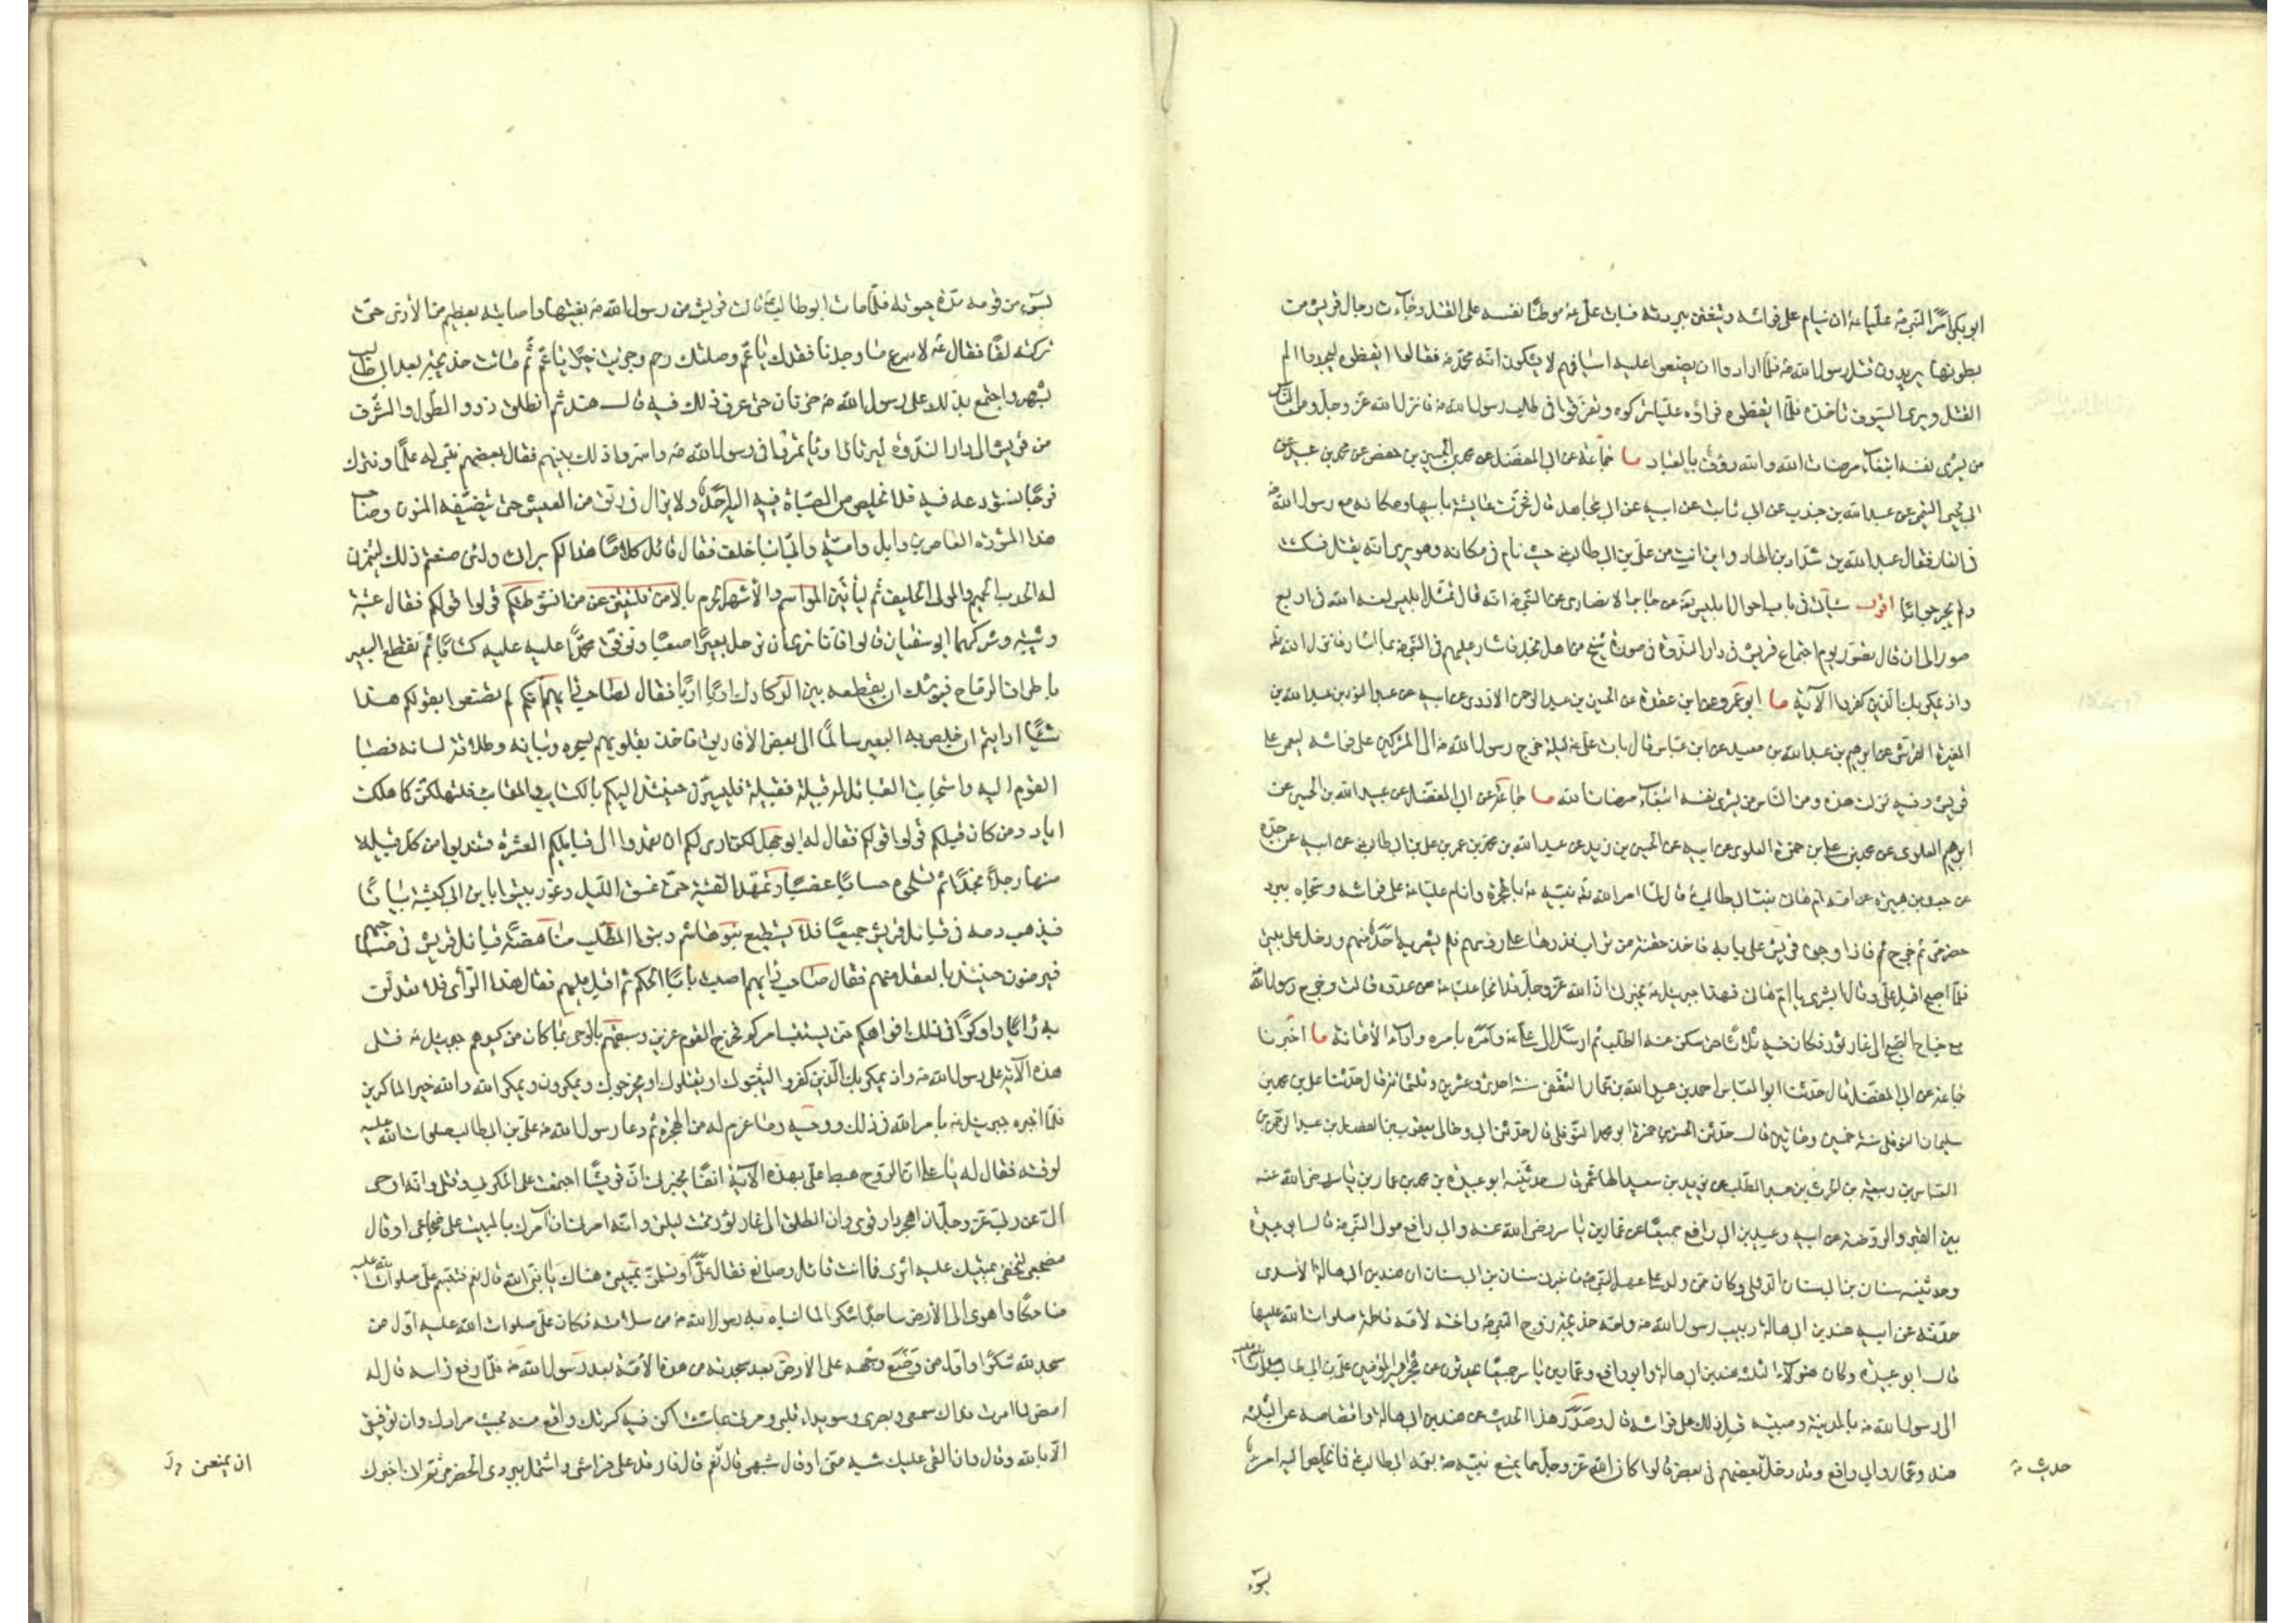 ابو بكر امر النبي ص عليا ع ان ينام على فراشه ويتغشى ببردته فبات علي ع موطنا نفسه على القتل وجاءت رجال قريش من
بطونها يريدون قتل رسول الله ص فلما ارادوا ان يضعوا عليه اسيافهم لا يشكون انه محمد ص فقالوا ايقظوه ليجد الم
القتل ويرى السيوف تاخذه فلما ايقظوه فراوه عليا تركوه وتفرقوا في طلب رسول الله ص فانزل الله عز وجل ومن الناس
من يشري نفسه ابتغاء مرضات الله والله رؤف بالعباد ما جماعة عن ابي المفضل عن محمد بن الحسين بن حفص عن محمد بن عبيد عن
ابي يحيى التيمي عن عبد الله بن جندب عن ابي ثابت عن ابيه عن ابي مجاهد قال فخرت عايشة بابيها ومكانه مع رسول الله ص
في الغار فقال عبد الله بن شداد بن الهاد واين انت من علي بن ابي طالب ع حيث نام في مكانه وهو يرى انه يقتل فسكتت
ولم تحر جوابا اقول سياتي في باب احوال ابليس عن جابر الانصاري عن النبي ص انه قال تمثل ابليس لعنه الله في اربع
صور الى ان قال تصور يوم اجتماع قريش في دار الندوة في صورة شيخ من اهل نجد فاشار عليهم في النبي ص بما اشار فانزل الله
واذ يمكر بك الذين كفروا الآية ما ابو عمرو عن ابن عقدة عن الحسين بن عبد الرحمن الازدي عن ابيه عن عبد النور بن عبد الله بن
المغيرة القرشي عن ابرهيم بن عبد الله بن معبد عن ابن عباس قال بات علي ع ليلة خرج رسول الله ص الى المشركين على فراشه ليعمى على
قريش وفيه نزلت هذه ومن الناس من يشري نفسه ابتغاء مرضات الله ما جماعة عن ابي المفضل عن عبيد الله بن الحسين عن
ابرهيم العلوي عن محمد بن علي بن حمزة العلوي عن ابيه عن الحسين بن زيد عن عبد الله بن محمد بن عمر بن علي بن ابي طالب ع عن ابيه عن جده
عن جعدة بن هبيرة عن امه ام هاني بنت ابي طالب قال لما امر الله نبيه ص بالهجرة وانام عليا ع على فراشه وسجاه ببرد
حضرمي ثم خرج فاذا وجوه قريش على بابه فاخذ حفنة من تراب فذرها على رؤسهم فلم يشعر به احد منهم ودخل علي بيتي
فلما اصبح اقبل علي وقال ابشري يا ام هاني فهذا جبرئيل ع يخبرني ان الله عز وجل قد انجا عليا ع من عدوه قالت وخرج رسول الله ص
مع جناح الصبح الى غار ثور فكان فيه ثلاثا حتى سكن عنه الطلب ثم ارسل الى علي ع وامره بامره واداء الامانة ما اخبرنا
جماعة عن ابي المفضل قال حدثنا ابو العباس احمد بن عبيد الله بن عمار الثقفي سنة احدى وعشرين وثلثمائة قال حدثنا علي بن محمد بن
سليمان النوفلي سنة خمسين ومائتين قال حدثني الحسن بن حمزة ابو محمد النوفلي قال حدثني ابي وخالي يعقوب بن الفضل بن عبد الرحمن بن
العباس بن ربيعة بن الحرث بن عبد المطلب عن زبير بن سعيد الهاشمي قال حدثنيه ابو عبيدة بن محمد بن عمار بن ياسر رضي الله عنه
بين القبر والروضة عن ابيه وعبيد الله بن ابي رافع جميعا عن عمار بن ياسر رضي الله عنه وابي رافع مولى النبي ص قال ابو عبيدة
وحدثنيه سنان بن ابي سنان الدؤلي وكان ممن ولد على عهد النبي ص فاخبرني سنان بن ابي سنان ان هند بن ابي هالة الاسدي
حدثه عن ابيه هند بن ابي هالة ربيب رسول الله ص وامه خديجة زوج النبي ص واخته لامه فاطمة صلوات الله عليها
قال ابو عبيدة وكان هؤلاء الثلثة هند بن ابي هالة وابو رافع وعمار بن ياسر جميعا يحدثون عن هجرة امير المؤمنين علي بن ابي طالب صلوات الله عليه
الى رسول الله ص بالمدينة ومبيته قبل ذلك على فراشه قال وصدر هذا الحديث عن هند بن ابي هالة واقتصاصه عن الثلثة
هند وعمار وابي رافع وقد دخل حديث بعضهم في بعض قالوا كان الله عز وجل مما يمنع نبيه ص بعمه ابي طالب ع فما يخلص اليه امر
حديث
بسوء
بسوء من قومه مدة حيوته فلما مات ابو طالب نالت قريش من رسول الله ص بغيتها واصابته بعظيم من الاذى حتى
تركته لقا فقال ص لاسرع ما وجدنا فقدك يا عم وصلتك رحم وجزيت خيرا يا عم ثم ماتت خديجة بعد ابي طالب
بشهر واجتمع بذلك على رسول الله ص حزنان حتى عرف ذلك فيه قال هند ثم انطلق ذوو الطول والشرف
من قريش الى دار الندوة ليرتاوا ويأتمروا في رسول الله ص واسروا ذلك بينهم فقال بعضهم نبني له علما ونترك
فرجا نستودعه فيه فلا يخلص من الصباة فيه اليه احد ولا يزال في رنق من العيش حتى يتضيفه المنون وصاحب
هذا المشورة العاص بن وايل وامية وابي ابنا خلف فقال قائل كلا ما هذا لكم براى ولئن صنعتم ذلك ليتنمرن
له الحدب الحميم والمولى الحليف ثم ليأتين المواسم والاشهر الحرم بالامن فلينتزعن من انشوطتكم قولوا قولكم فقال عتبة
وشيبة وشركهما ابو سفيان قالوا فانا نرى ان نرحل بعيرا صعبا ونوثق محمدا عليه كتافا ثم نقطع البعير
باطراف الرماح فيوشك ان يقطعه بين الدكادك اربا اربا فقال صاحب رايهم انكم لم تصنعوا بقولكم هذا
شيئا ارايتم ان خلص به البعير سالما الى بعض الافاريق فاخذ بقلوبهم بسحره وبيانه وطلاقة لسانه فصبا
القوم اليه واستجابت القبائل له قبيلة فقبيلة فليسيرن حينئذ اليكم بالكتايب والمقانب فلتهلكن كما هلكت
اياد ومن كان قبلكم قولوا قولكم فقال له ابو جهل لكن ارى لكم ان تعمدوا الى قبايلكم العشرة فتندبوا من كل قبيلة
منها رجلا نجدا ثم تسلحوه حساما عضبا وتمهل الفتية حتى اذا غسق الليل وغور بيتوا بابن ابي كبشة بياتا
فيذهب دمه في قبائل قريش جميعا فلا يستطيع بنو هاشم وبنو المطلب مناهضة قبائل قريش في صاحبهم
فيرضون حينئذ بالعقل منهم فقال صاحب رايهم اصبت يا با الحكم ثم اقبل عليهم فقال هذا الراى فلا تعدلن
به رايا واوكوا في ذلك افواهكم حتى يستتب امركم فخرج القوم عزين وسبقهم بالوحى بما كان من كيدهم جبرئيل ع فتلى
هذه الآية على رسول الله ص واذ يمكر بك الذين كفروا ليثبتوك او يقتلوك او يخرجوك ويمكرون ويمكر الله والله خير الماكرين
فلما اخبره جبرئيل ع بامر الله في ذلك ووحيه وما عزم له من الهجرة ثم دعا رسول الله ص علي بن ابي طالب صلوات الله عليه
لوقته فقال له يا علي ان الروح هبط علي بهذه الآية آنفا يخبرني ان قريشا اجتمعت على المكر بي وقتلي وانه اوحى
الي عن ربي عز وجل ان اهجر دار قومي وان انطلق الى غار ثور تحت ليلتي وانه امرني ان آمرك بالمبيت على ضجاعي او قال
مضجعي لتخفى بمبيتك عليه اثري فما انت قائل وصانع فقال علي ع او تسلمن بمبيتي هناك يا نبي الله قال نعم فتبسم علي صلوات الله عليه
ضاحكا واهوى الى الارض ساجدا شكرا لما انباه به رسول الله ص من سلامته فكان علي صلوات الله عليه اول من
سجد لله شكرا واول من وضع وجهه على الارض بعد سجدته من هذه الامة بعد رسول الله ص فلما رفع راسه قال له
امض لما امرت فداك سمعي وبصري وسويداء قلبي ومرني بما شئت اكن فيه كمسرتك واقع منه بحيث مرادك وان توفيقي
الا بالله وقال وان القي عليك شبه مني او قال شبهي قال نعم قال فارقد على فراشي واشتمل ببردي الحضرمي ثم اني اخبرك
ان يمنعن